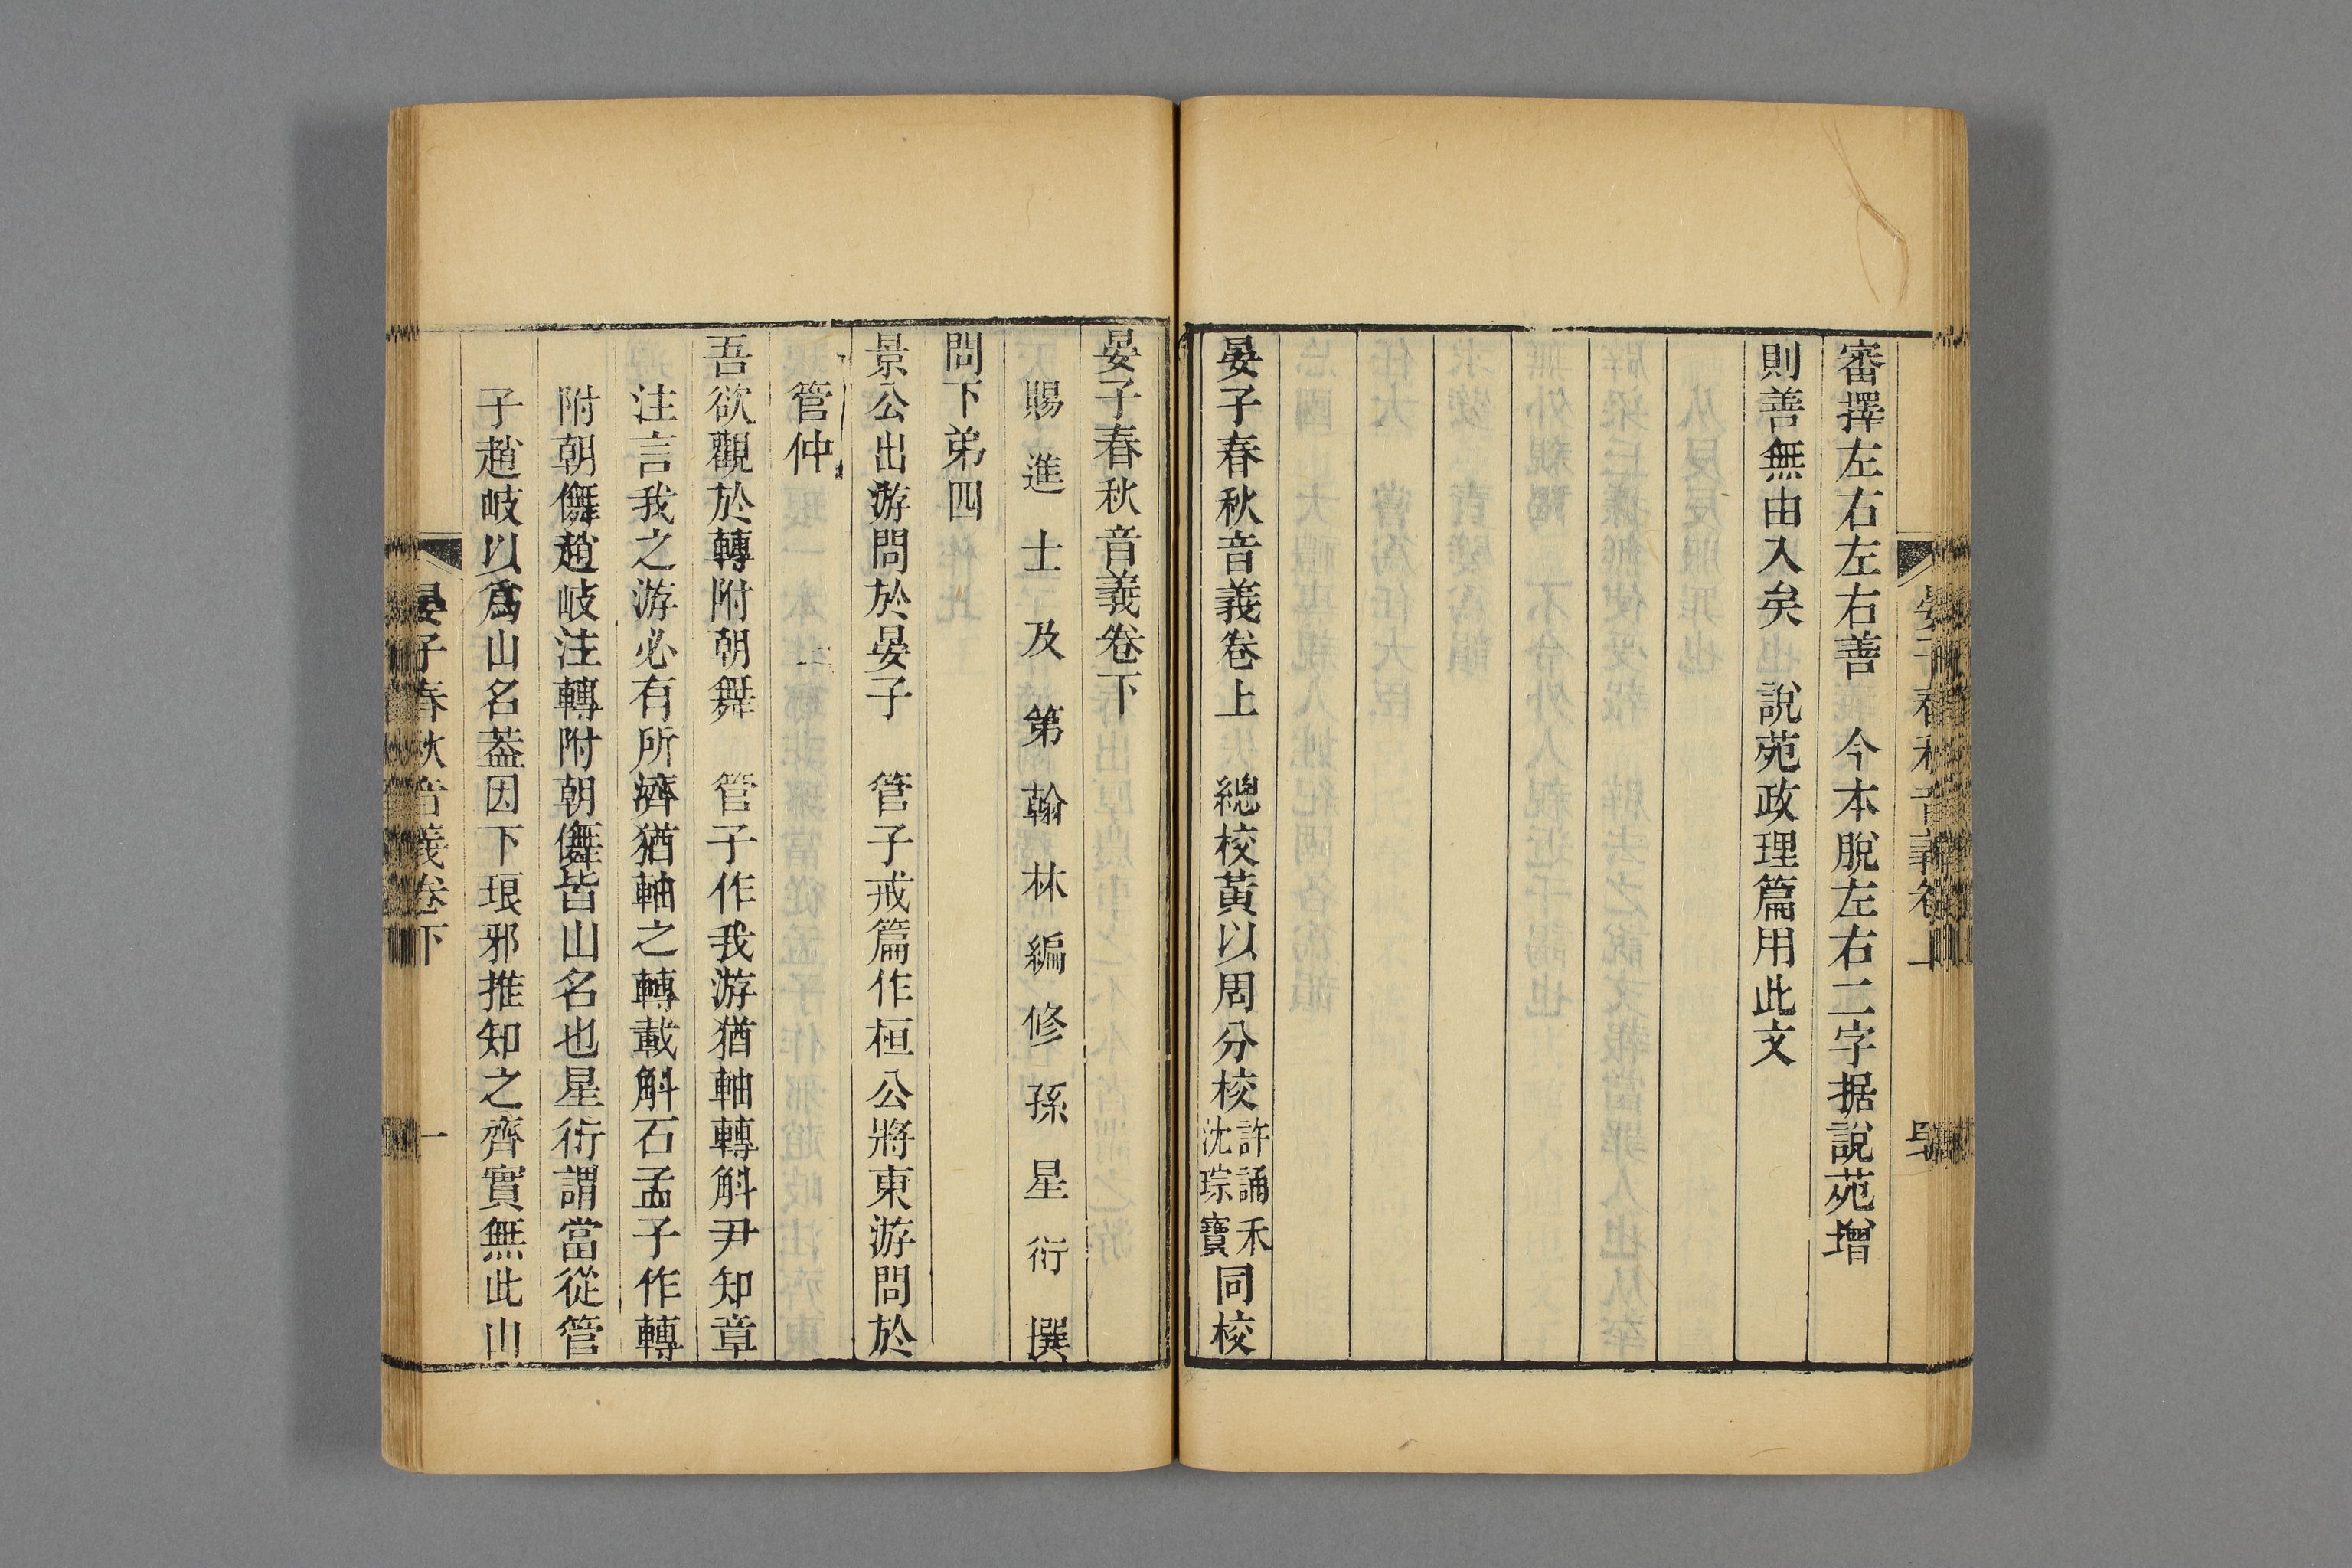 審擇左右左右善　今本脫左右二字据說苑增
則善無由入矣　說苑政理篇用此文
晏子春秋音義卷上　總校黃以周分校許誦禾沈琮寶同校
晏子春秋音義卷下
賜進士及第翰林編修孫星衍撰
問下弟四
景公出游問於晏子　管子戒篇作桓公將東游問於
管仲
吾欲觀於轉附朝舞　管子作我游猶軸轉斛尹知章
注言我之游必有所濟猶軸之轉載斛石孟子作轉
附朝儛趙岐注轉附朝儛皆山名也星衍謂當從管
子趙岐以爲山名葢因下琅邪推知之齊實無此山
晏子春秋音義卷下
一